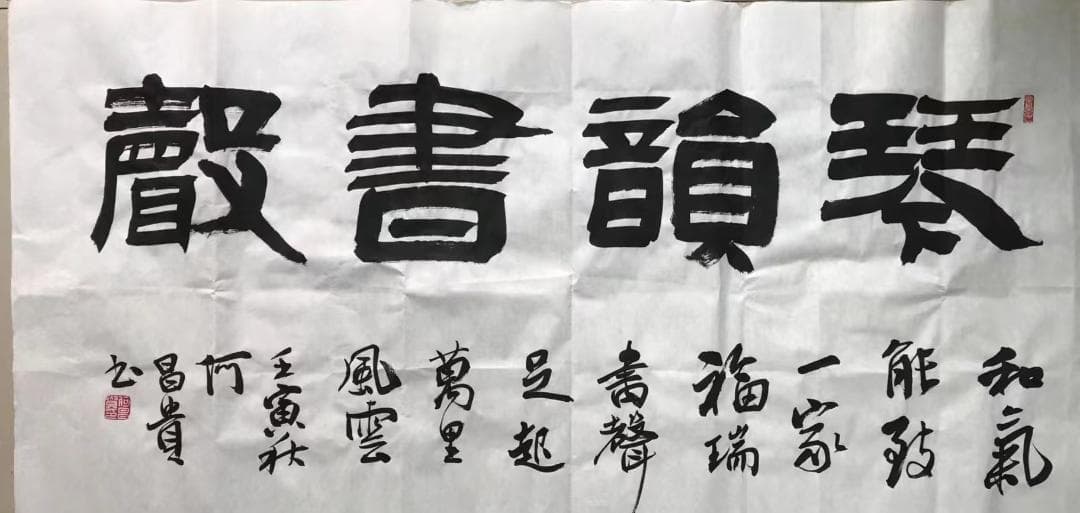 琴韻書聲
和氣
能致
一家
福瑞
書聲
足起
萬里
風雲
壬寅秋
阿
昌貴
书